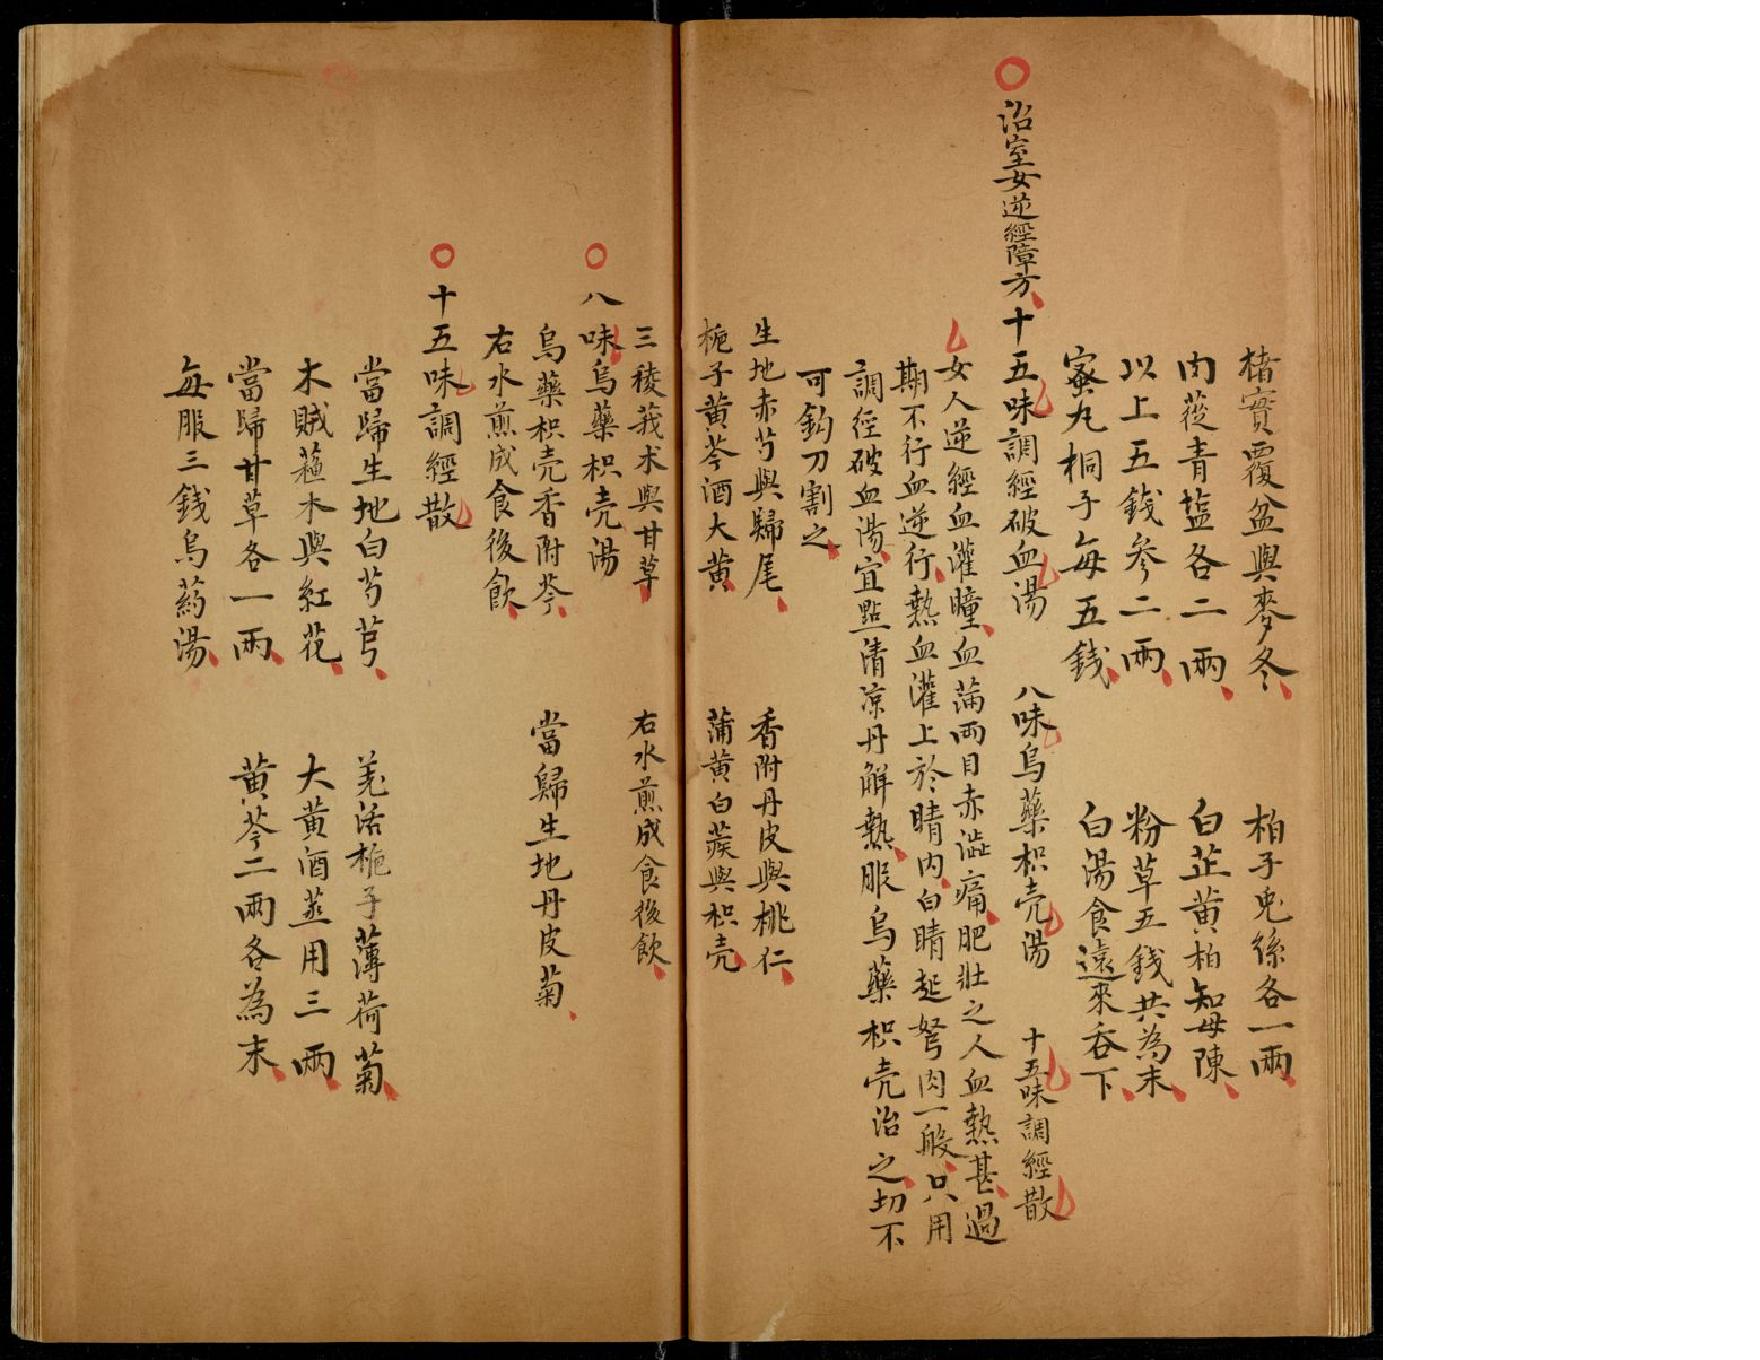 楮實覆盆與麥冬 柏子兎絲各一兩
肉蓯青塩各二兩 白芷黄柏知母陳
以上五錢參二兩 粉草五錢共為末
蜜丸桐子每五錢 白湯食遠來吞下
○治室女逆經障方 十五味調經破血湯 八味烏藥枳壳湯 十五味調經散
女人逆經血灌瞳血蒲兩目赤澁痛肥壯之人血熱甚過
期不行血逆行熱血灌上於睛内白睛起弩肉一般只用
調径破血湯宜點清凉丹觧熱服烏藥枳壳治之切不
可鈎刀割之
生地赤芍與歸尾 香附丹皮與桃仁
梔子黄芩酒大黄 蒲黄白蒺與枳壳
三稜莪朮與甘草 右水煎成食後飲
○八味烏藥枳壳湯
烏藥枳壳香附芩 當歸生地丹皮菊
右水煎成食後飲
○十五味調經散
當歸生地白芍芎 羌活梔子薄荷菊
木賊蘓木與紅花 大黄酒蒸用三兩
當歸甘草各一兩 黄芩二兩各為末
每服三錢烏葯湯